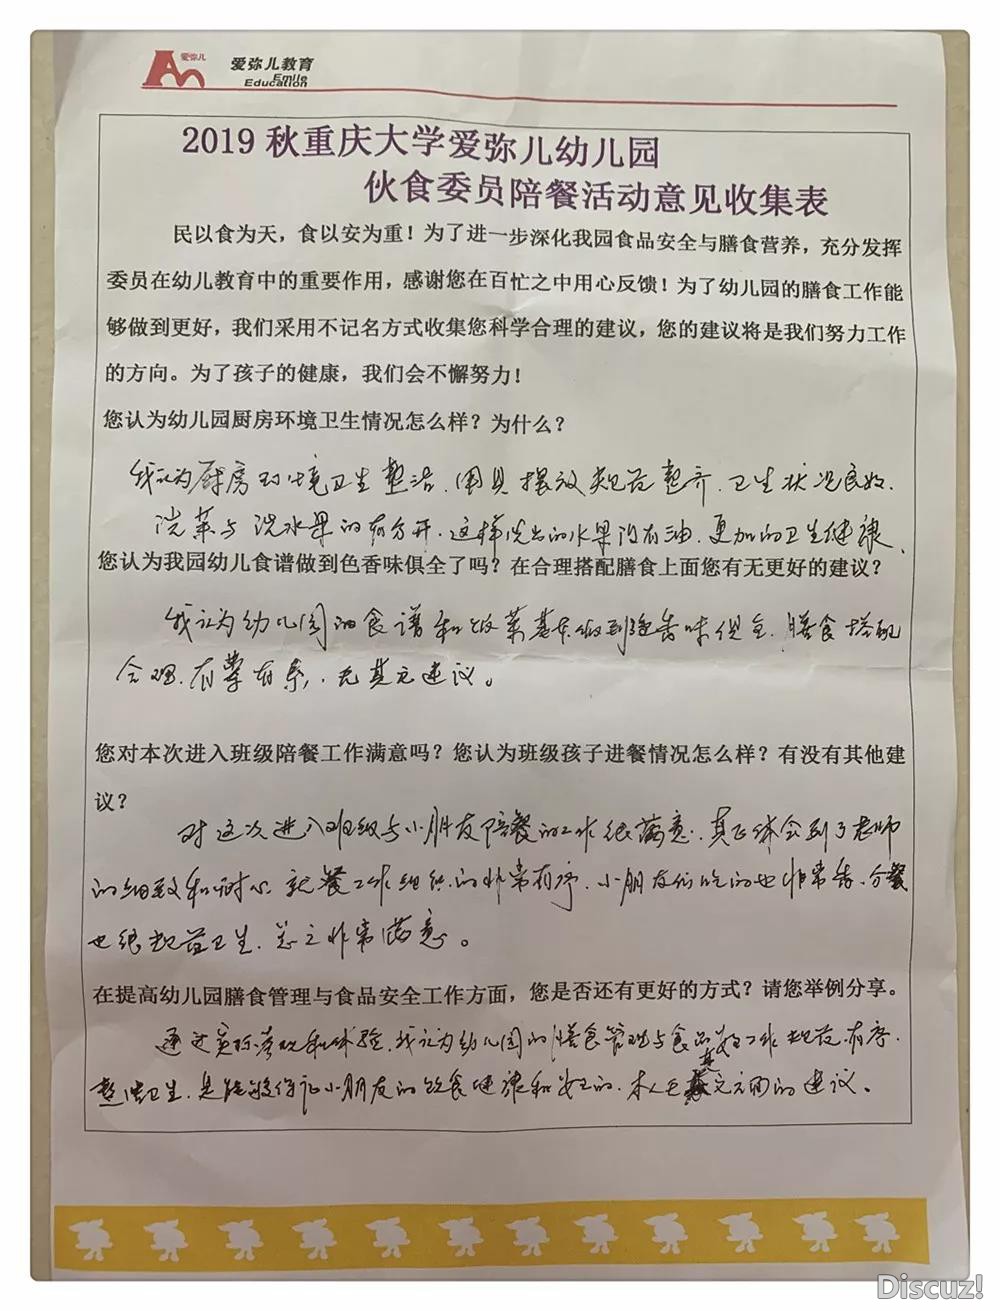 爱弥儿
爱弥儿教育
Emile
Education
2019 秋重庆大学爱弥儿幼儿园
伙食委员陪餐活动意见收集表
民以食为天，食以安为重！为了进一步深化我园食品安全与膳食营养，充分发挥
委员在幼儿教育中的重要作用，感谢您在百忙之中用心反馈！为了幼儿园的膳食工作能
够做到更好，我们采用不记名方式收集您科学合理的建议，您的建议将是我们努力工作
的方向。为了孩子的健康，我们会不懈努力！
您认为幼儿园厨房环境卫生情况怎么样？为什么？
我认为厨房环境卫生整洁、用具摆放规范整齐、卫生状况良好.
洗菜与洗水果的有分开.这样洗出的水果没有油.更加的卫生健康、
您认为我园幼儿食谱做到色香味俱全了吗？在合理搭配膳食上面您有无更好的建议？
我认为幼儿园的食谱和饭菜基本做到色香味俱全.膳食搭配
合理.有荤有素.无其它建议。
您对本次进入班级陪餐工作满意吗？您认为班级孩子进餐情况怎么样？有没有其他建
议？
对这次进入班级与小朋友陪餐的工作很满意.真正体会到了老师
的细致和耐心 就餐工作组织的非常有序.小朋友们吃的也非常香.分餐
也很规范卫生.总之非常满意。
在提高幼儿园膳食管理与食品安全工作方面，您是否还有更好的方式？请您举例分享。
通过实际参观和体验.我认为幼儿园的膳食管理与食品安全工作规范.有序.
整洁卫生.是能够保证小朋友的饮食健康和安全的.本人无其它方面的建议。
Discuz!